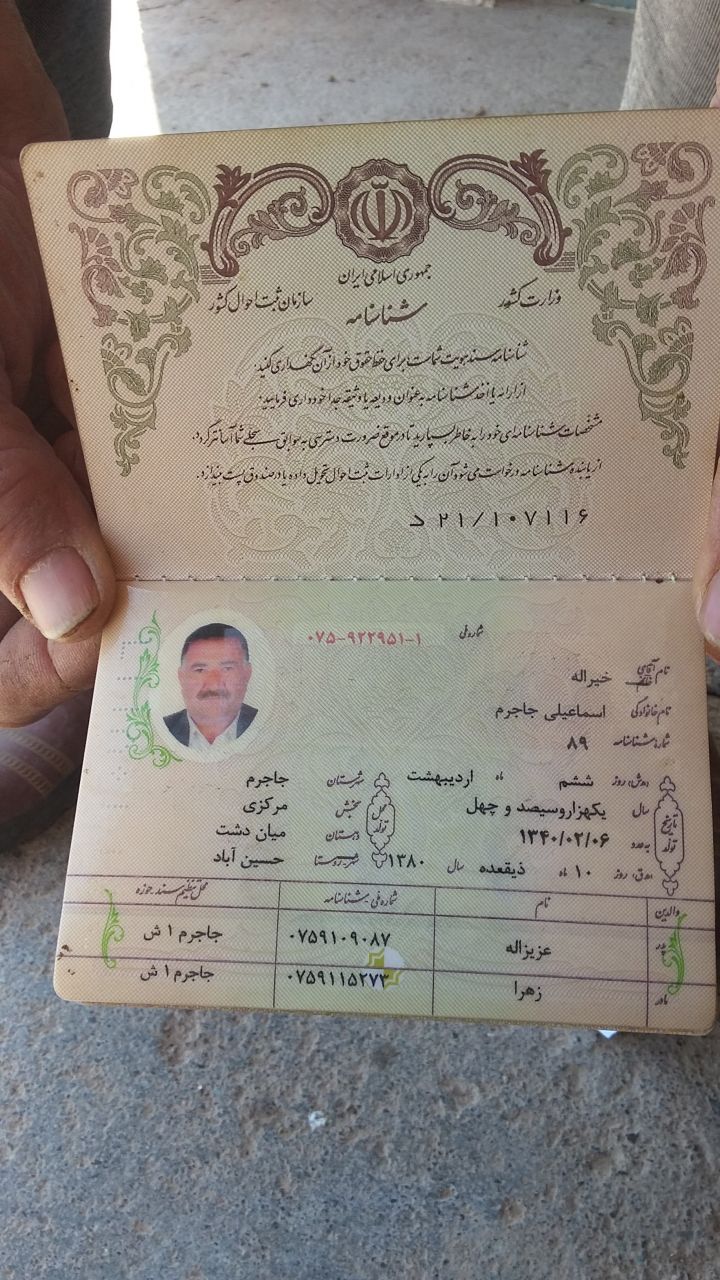 جمهوری اسلامی ایران
وزارت کشور
سازمان ثبت احوال کشور
شناسنامه
شناسنامه سند هویت شماست برای حفظ حقوق خود از آن نگهداری کنید.
از ارائه یا اخذ شناسنامه به عنوان ودیعه یا وثیقه جداً خودداری فرمایید.
مشخصات شناسنامه‌ای خود را به خاطر بسپارید تا در موقع ضرورت دسترسی به سوابق سجلی شما آسانتر گردد.
از یابنده شناسنامه درخواست می‌شود آن را به یکی از ادارات ثبت احوال تحویل داده یا در صندوق پست بیندازد.
د ۲۱/۱۰۷۱۱۶
شماره ملی ۰۷۵-۹۲۲۹۵۱-۱
نام آقای خانم خیراله
نام خانوادگی اسماعیلی جاجرم
شماره شناسنامه ۸۹
تاریخ تولد
(ه‍.ش) روز ششم ماه اردیبهشت
سال یکهزاروسیصد و چهل
به عدد ۱۳۴۰/۰۲/۰۶
(ه‍.ق) روز ۱۰ ماه ذیقعده سال ۱۳۸۰
محل تولد
شهرستان جاجرم
بخش مرکزی
دهستان میان دشت
شهر-روستا حسین آباد
والدین نام شماره ملی-شناسنامه محل تنظیم سند حوزه
پدر عزیزاله ۰۷۵۹۱۰۹۰۸۷ جاجرم ۱ ش
مادر زهرا ۰۷۵۹۱۱۵۲۷۳ جاجرم ۱ ش